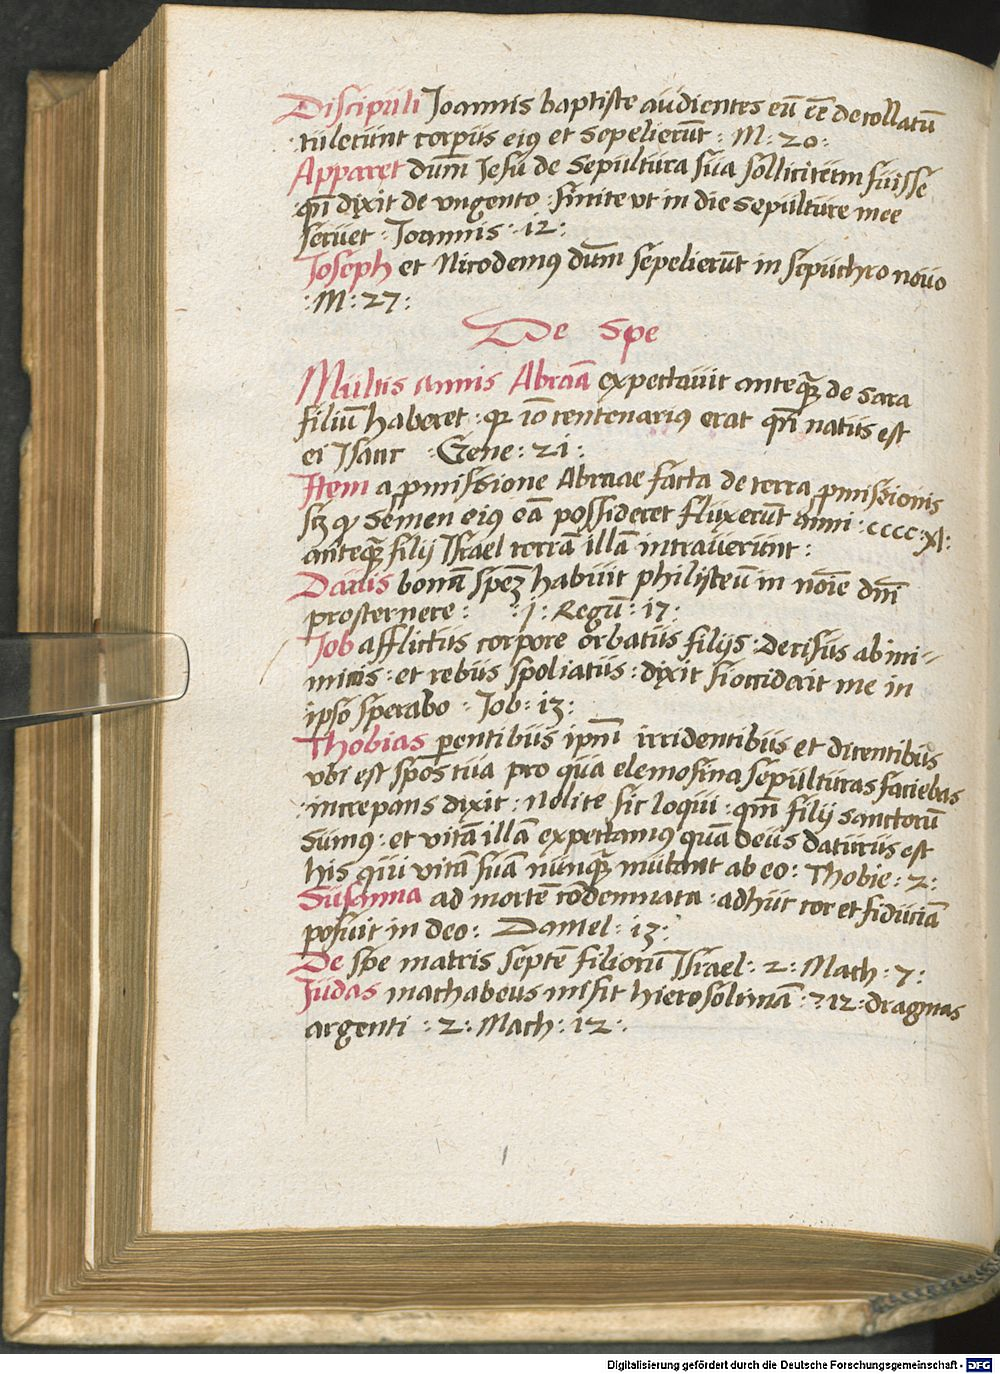 Discipuli Joannis baptiste audientes eū eē decollatū
tulerunt corpus eiꝰ et sepelierūt : M : 20 :
Apparet dūm Jesū de sepultura sua sollicitum fuisse
qn̄ dixit de vngento · sinite vt in die sepulture mee
seruet : Joannis · 12 :
Joseph et Nicodemꝰ dūm sepelierūt in sepuchro nouo
: M : 27 :
De spe
Multis annis Abraā expectauit anteqꝫ de sara
filiū haberet : qꝛ iō centenariꝰ erat qn̄ natus est
ei Isaac : Gene : 21 :
Item a ꝓmissione Abraae facta de terra ꝓmissionis
sꝫ qꝫ semen eiꝰ eā possideret fluxerūt anni · cccc · xl :
anteqꝫ filij Israel terrā illā intrauerunt :
Dauis bonā spem habuit philisteū in noīe dn̄i
prosternere : : j : Regū : 17 :
Job afflictus corpore orbatus filijs : derisus ab ini-
micis : et rebus spoliatus : dixit si occiderit me in
ipso sperabo : Job : 13 :
Thobias ꝑentibus ipm̄ irridentibus et dicentibus
vbi est spes tua pro qua elemosina sepulturas faciebas
increpans dixit : nolite sic loqui : qm̄ filij sanctorū
sumꝰ : et vitā illā expectamꝰ quā deus daturus est
his qui vitā suā nunqꝫ mutant ab eo : Thobie : 2 :
Susanna ad mortē codemnata · adhuc cor et fiduciā
posuit in deo : Daniel : 13 :
De spe matris septē filiorū Israel : 2 : Mach : 7 :
Judas machabeus misit hierosolimā : 712 : dragmas
argenti : 2 : Mach : 12 :
Digitalisierung gefördert durch die Deutsche Forschungsgemeinschaft - DFG